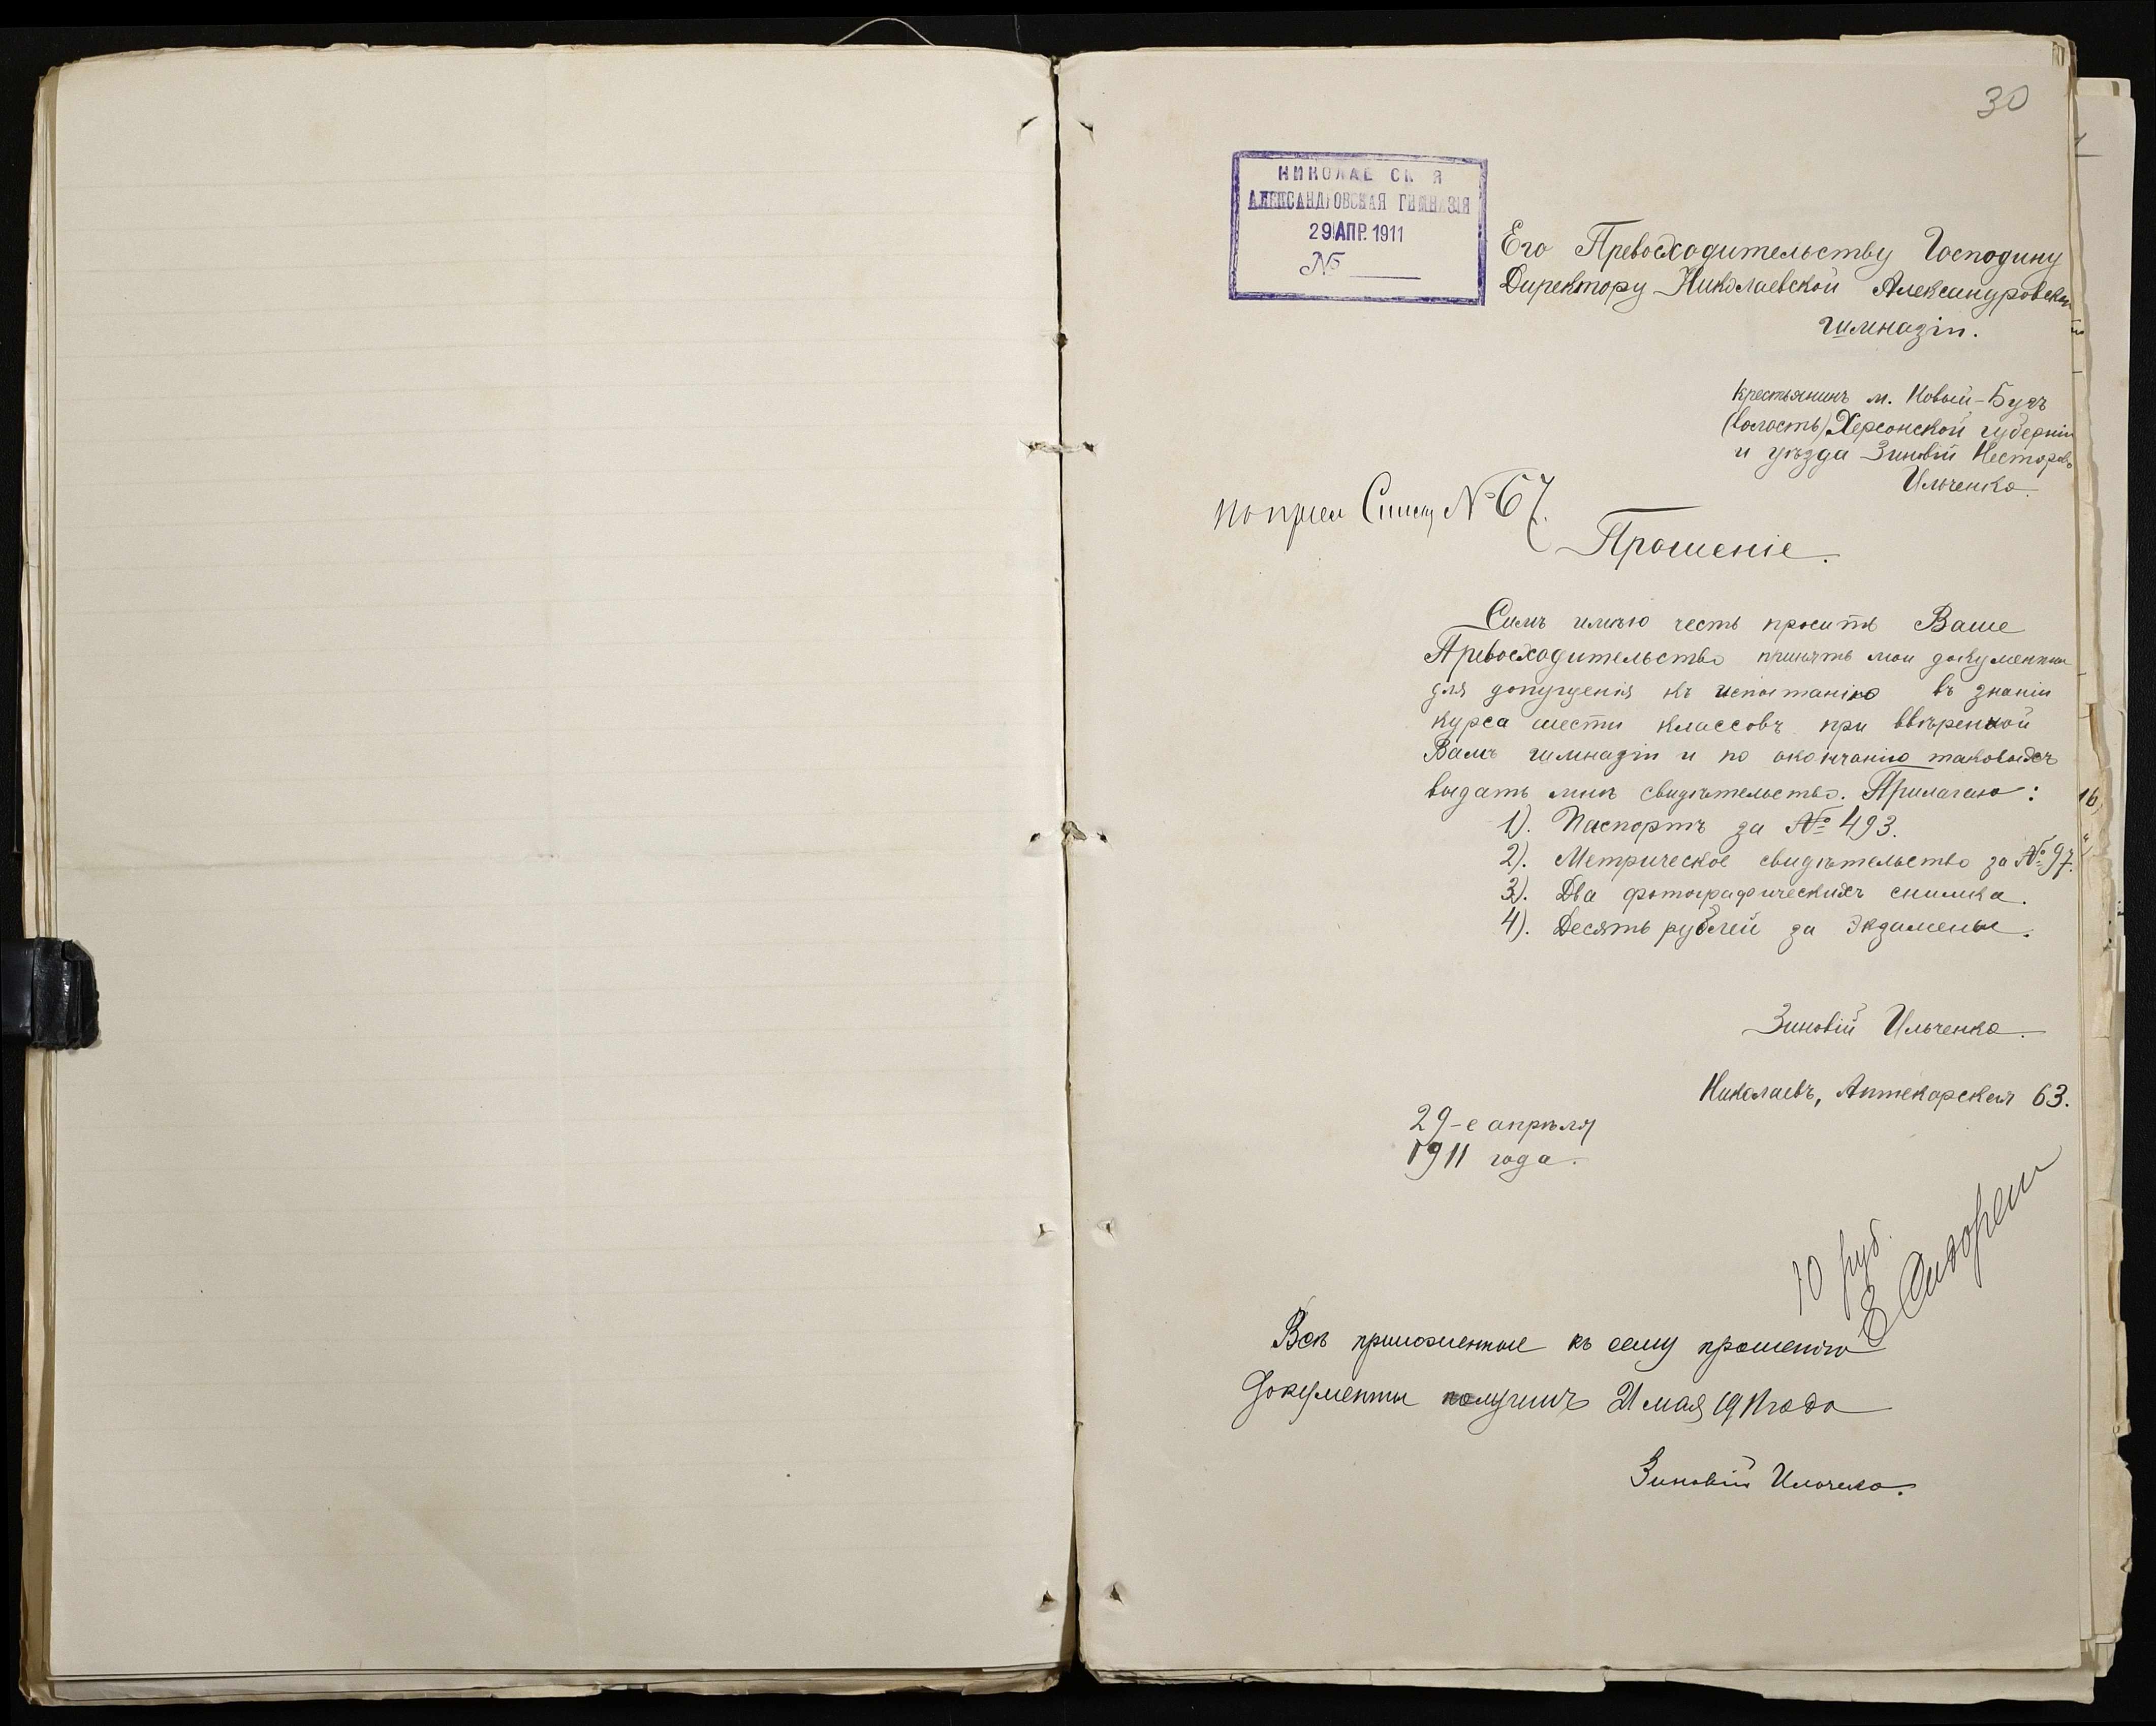 30
НИКОЛАЕ СК Я
АЛЕКСАНДРОВСКАЯ ГИМНАЗІЯ
29 АПР. 1911
№
Его Превосходительству Господину
Директору Николаевской Александровской
гимназіи.
крестьянинъ м. Новый-Бугъ
(волость) Херсонской губерніи
и уѣзда Зиновій Несторовъ
Ильченко.
По прием Списку № 67.
Прошеніе.
Симъ имѣю честь просить Ваше
Превосходительство принять мои документы
для допущенія къ испытанію въ знаніи
курса шести классовъ при ввѣренной
Вамъ гимназіи и по окончанію таковыхъ
выдать мнѣ свидѣтельство. Прилагаю:
1). Паспортъ за № 493.
2). Метрическое свидѣтельство за № 97.
3). Два фотографическихъ снимка.
4). Десять рублей за экзамены.
Зиновій Ильченко.
Николаевъ, Аптекарская 63.
29-е апрѣля
1911 года.
10 руб.
Всѣ приложенные къ сему прошенію
документы получилъ 21 мая 1911 года
Зиновій Ильченко.